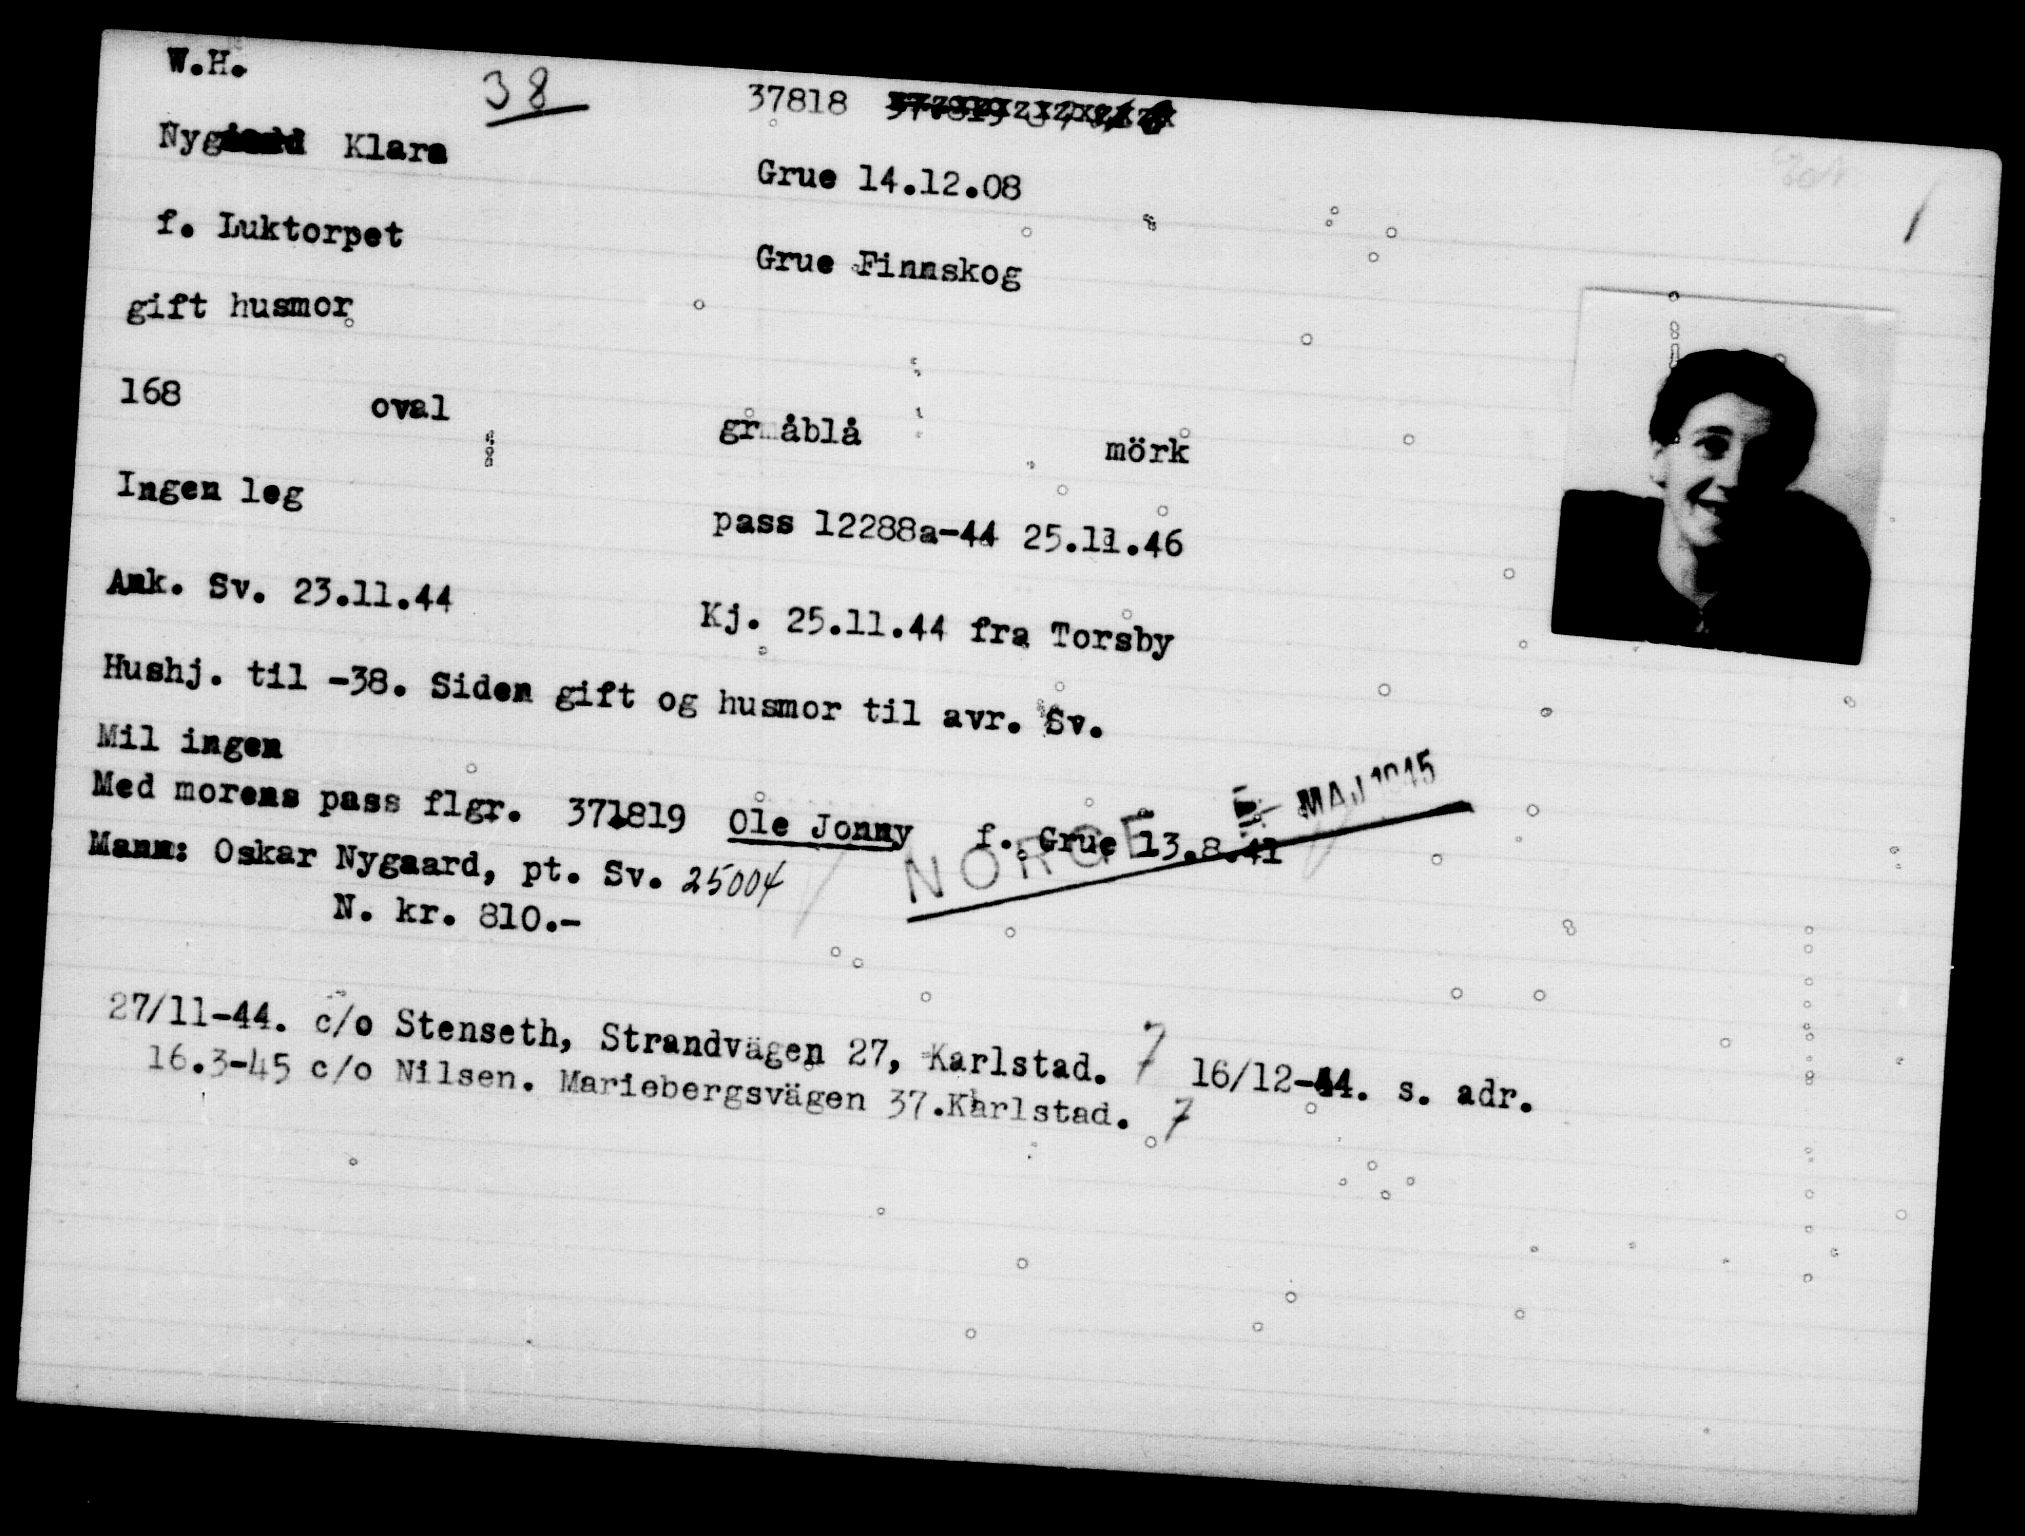 W.H.
38
37818
Nygaard Klara
Grue 14.12.08
f. Luktorpet
Grue Finnskog
gift husmor
168 oval gråblå mörk
Ingen leg
pass 12288a-44 25.11.46
Ank. Sv. 23.11.44
Kj. 25.11.44 fra Torsby
Hushj. til -38. Siden gift og husmor til avr. Sv.
Mil ingen
MAJ 1945
Med morens pass flgr. 371819 Ole Jonny f. Grue 13.8.41
NORGE
Mann: Oskar Nygaard, pt. Sv. 25004
N. kr. 810.-
27/11-44. c/o Stenseth, Strandvägen 27, Karlstad. 7 16/12-44. s. adr.
16.3-45 c/o Nilsen. Mariebergsvägen 37.Karlstad. 7